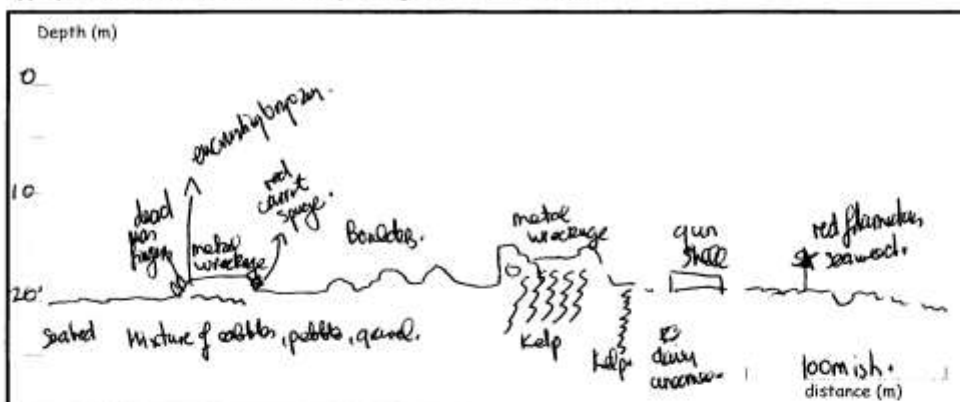 Depth (m)
0
encrusting bryozoan.
10
dead
man
fingers
metal
wreckage
red
currant
sponge.
Boulders.
metal
wreckage
gun
shell
red filamentous
seaweed.
20
Seabed Mixture of cobbles, pebbles, gravel.
Kelp
Kelp
100mish.
distance (m)